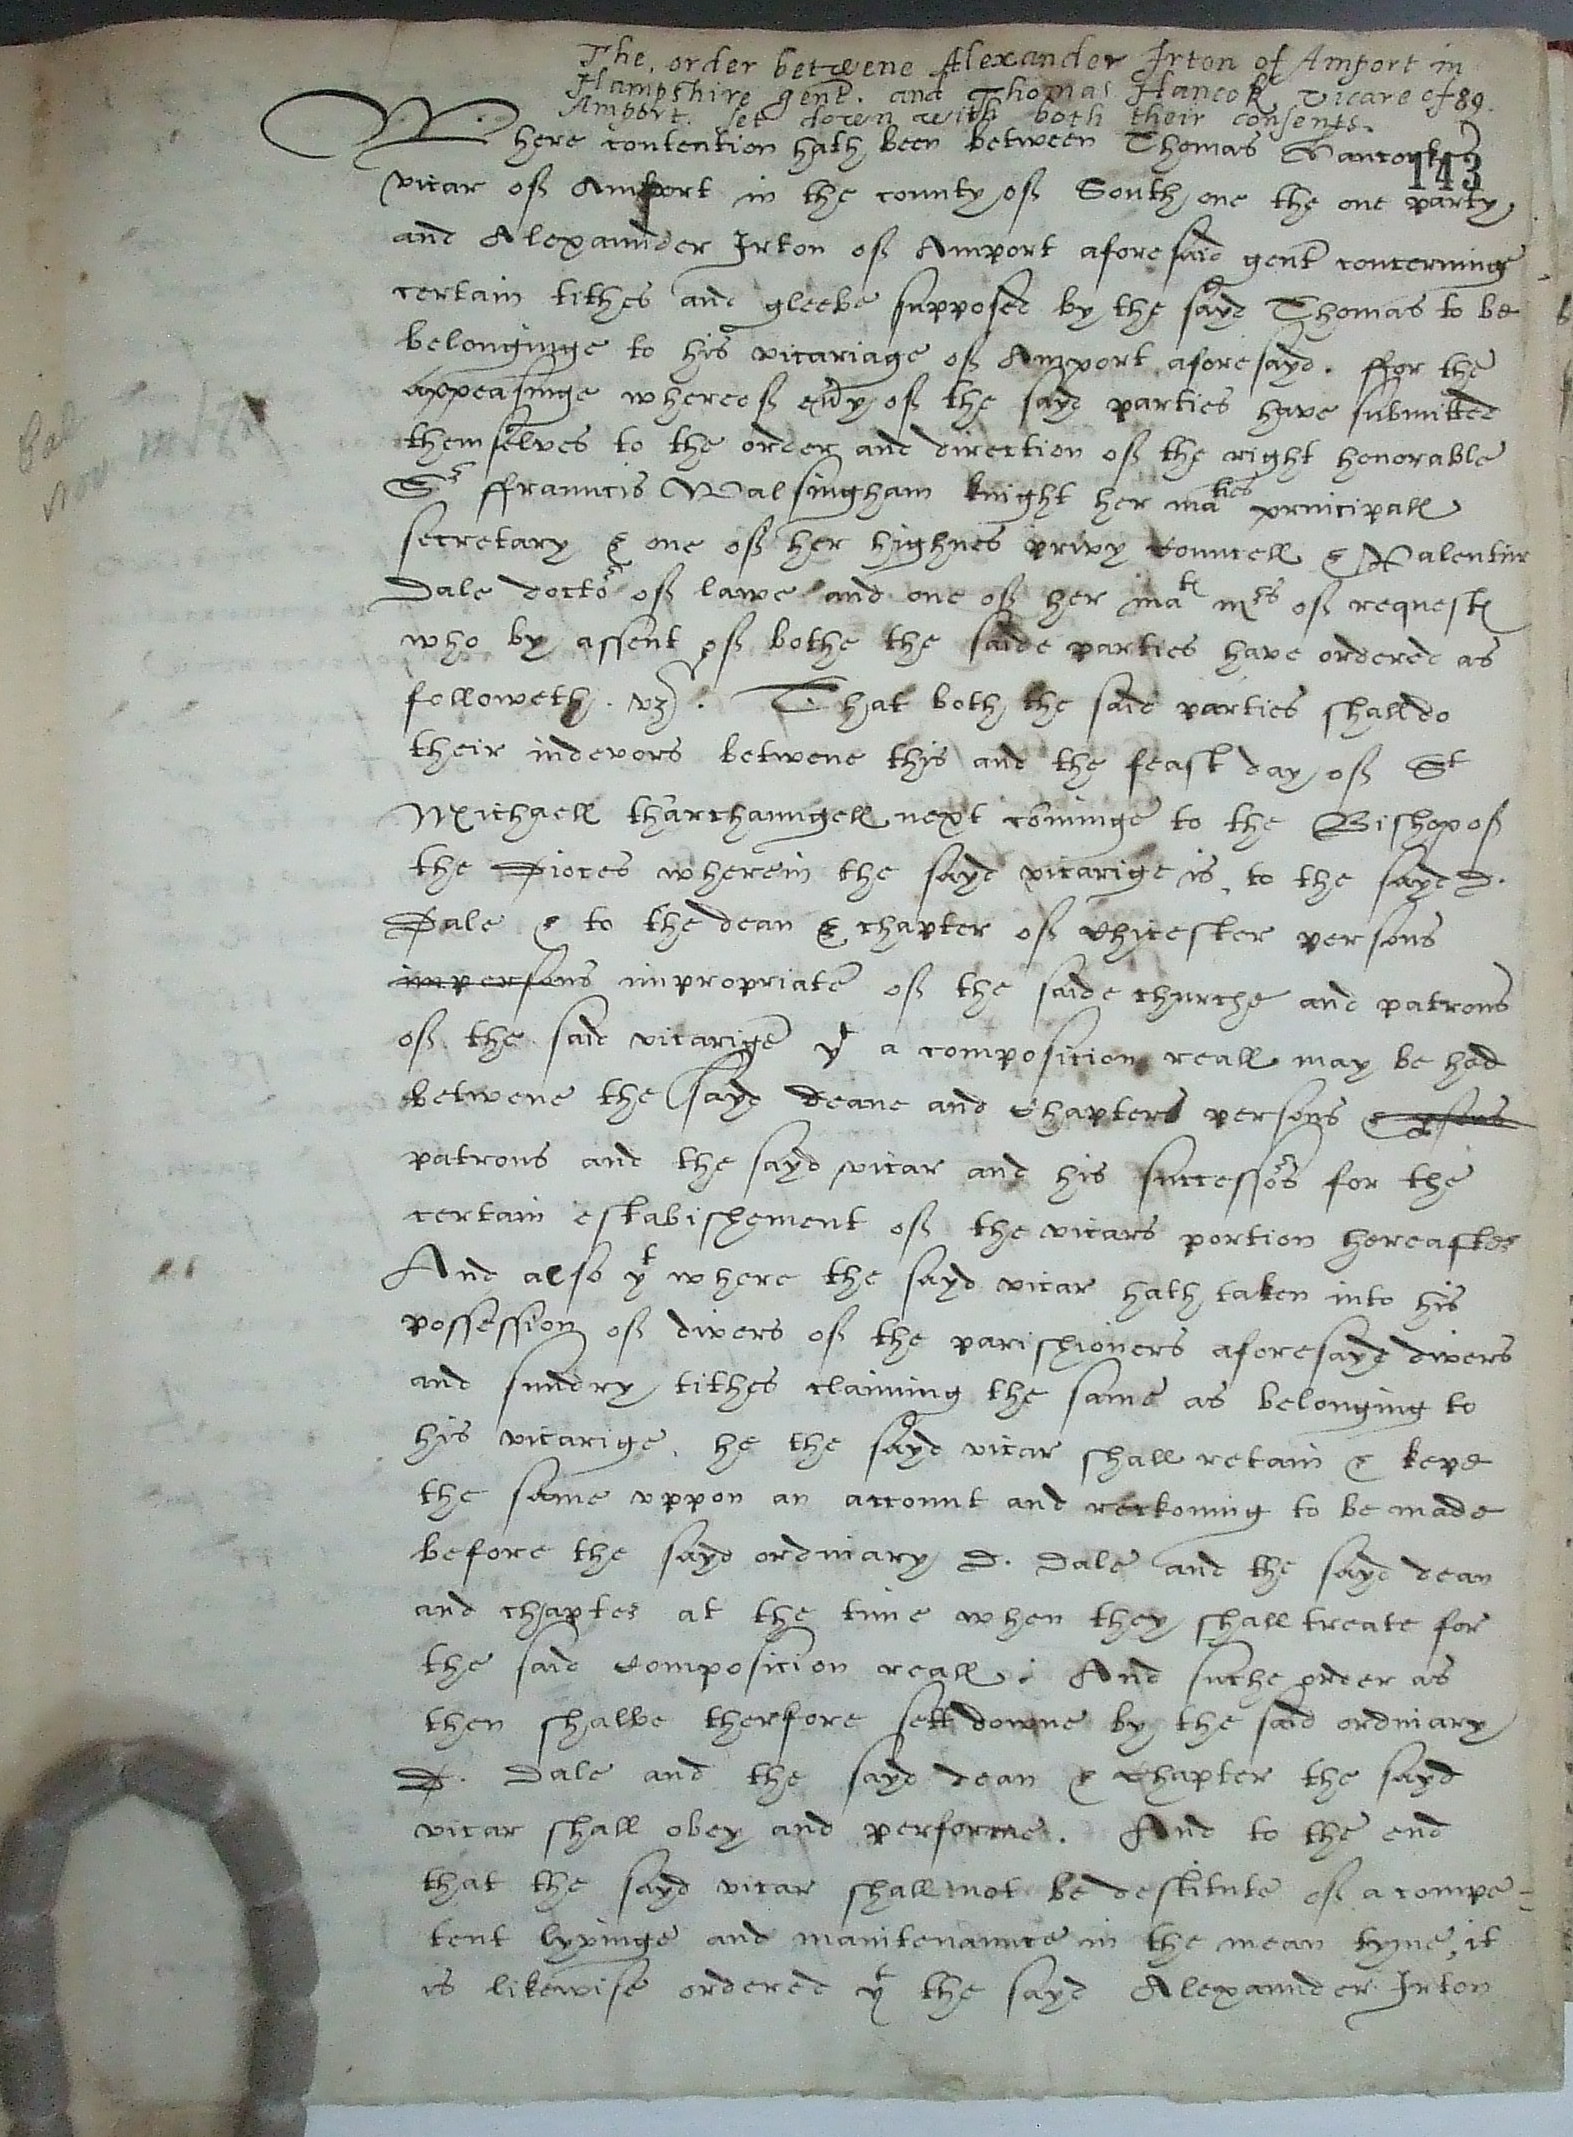 The order betwene Alexander Irton of Amport in
Hampshire gent. and Thomas Hancok Vicare of 89.
Amport. set down with both their consents.
Where contention hath been between Thomas Hancocke
143
vicar off Amport in the county off South one the one party
and Alexaunder Irton off Amport aforesaid gent concerninge
certain tithes and gleebe supposed by the sayd Thomas to be
belonginge to his vicariage off Amport aforesayd. ffor the
appeasinge whereoff eny off the sayd parties have submitted
themselves to the order and direction off the right honorable
Sr ffrauncis Walsingham knight her maties principall
secretary & one off her highnes privy councell & Valentin
Dale doctor off lawe and one off her mates mrs off requests
who by assent off bothe the saide parties have ordered as
followeth. vz. That both the said parties shall do
their indevors betwene this and the feast day off St
Michaell tharchaungell next cominge to the Bishop off
the Dioces wherein the sayd vicarige is, to the sayd D.
Dale & to the dean & chapter off Chicester persons
impersons impropriate off the saide churche and patrons
off the said vicarige yt a composicion reall may be had
betwene the sayd Deane and Chapters persons &
patrons and the sayd vicar and his successors for the
certain establishement off the vicars portion hereafter
And also yt where the sayd vicar hath taken into his
possession off divers off the parishioners aforesayd divers
and sundry tithes claiming the same as belonging to
his vicarige. he the sayd vicar shall retain & kepe
the same uppon an account and reckoning to be made
before the sayd ordinary D. Dale and the sayd dean
and chapter at the time when they shall treate for
the said Composicion reall. And suche order as
then shalbe therfore sett downe by the said ordinary
D. Dale and the sayd dean & Chapter the sayd
vicar shall obey and performe. And to the end
that the sayd vicar shall not be destitute off a compe=
tent lyvinge and maintenaunce in the mean tyme, it
is likewise ordered yt the sayd Alexaunder Irton